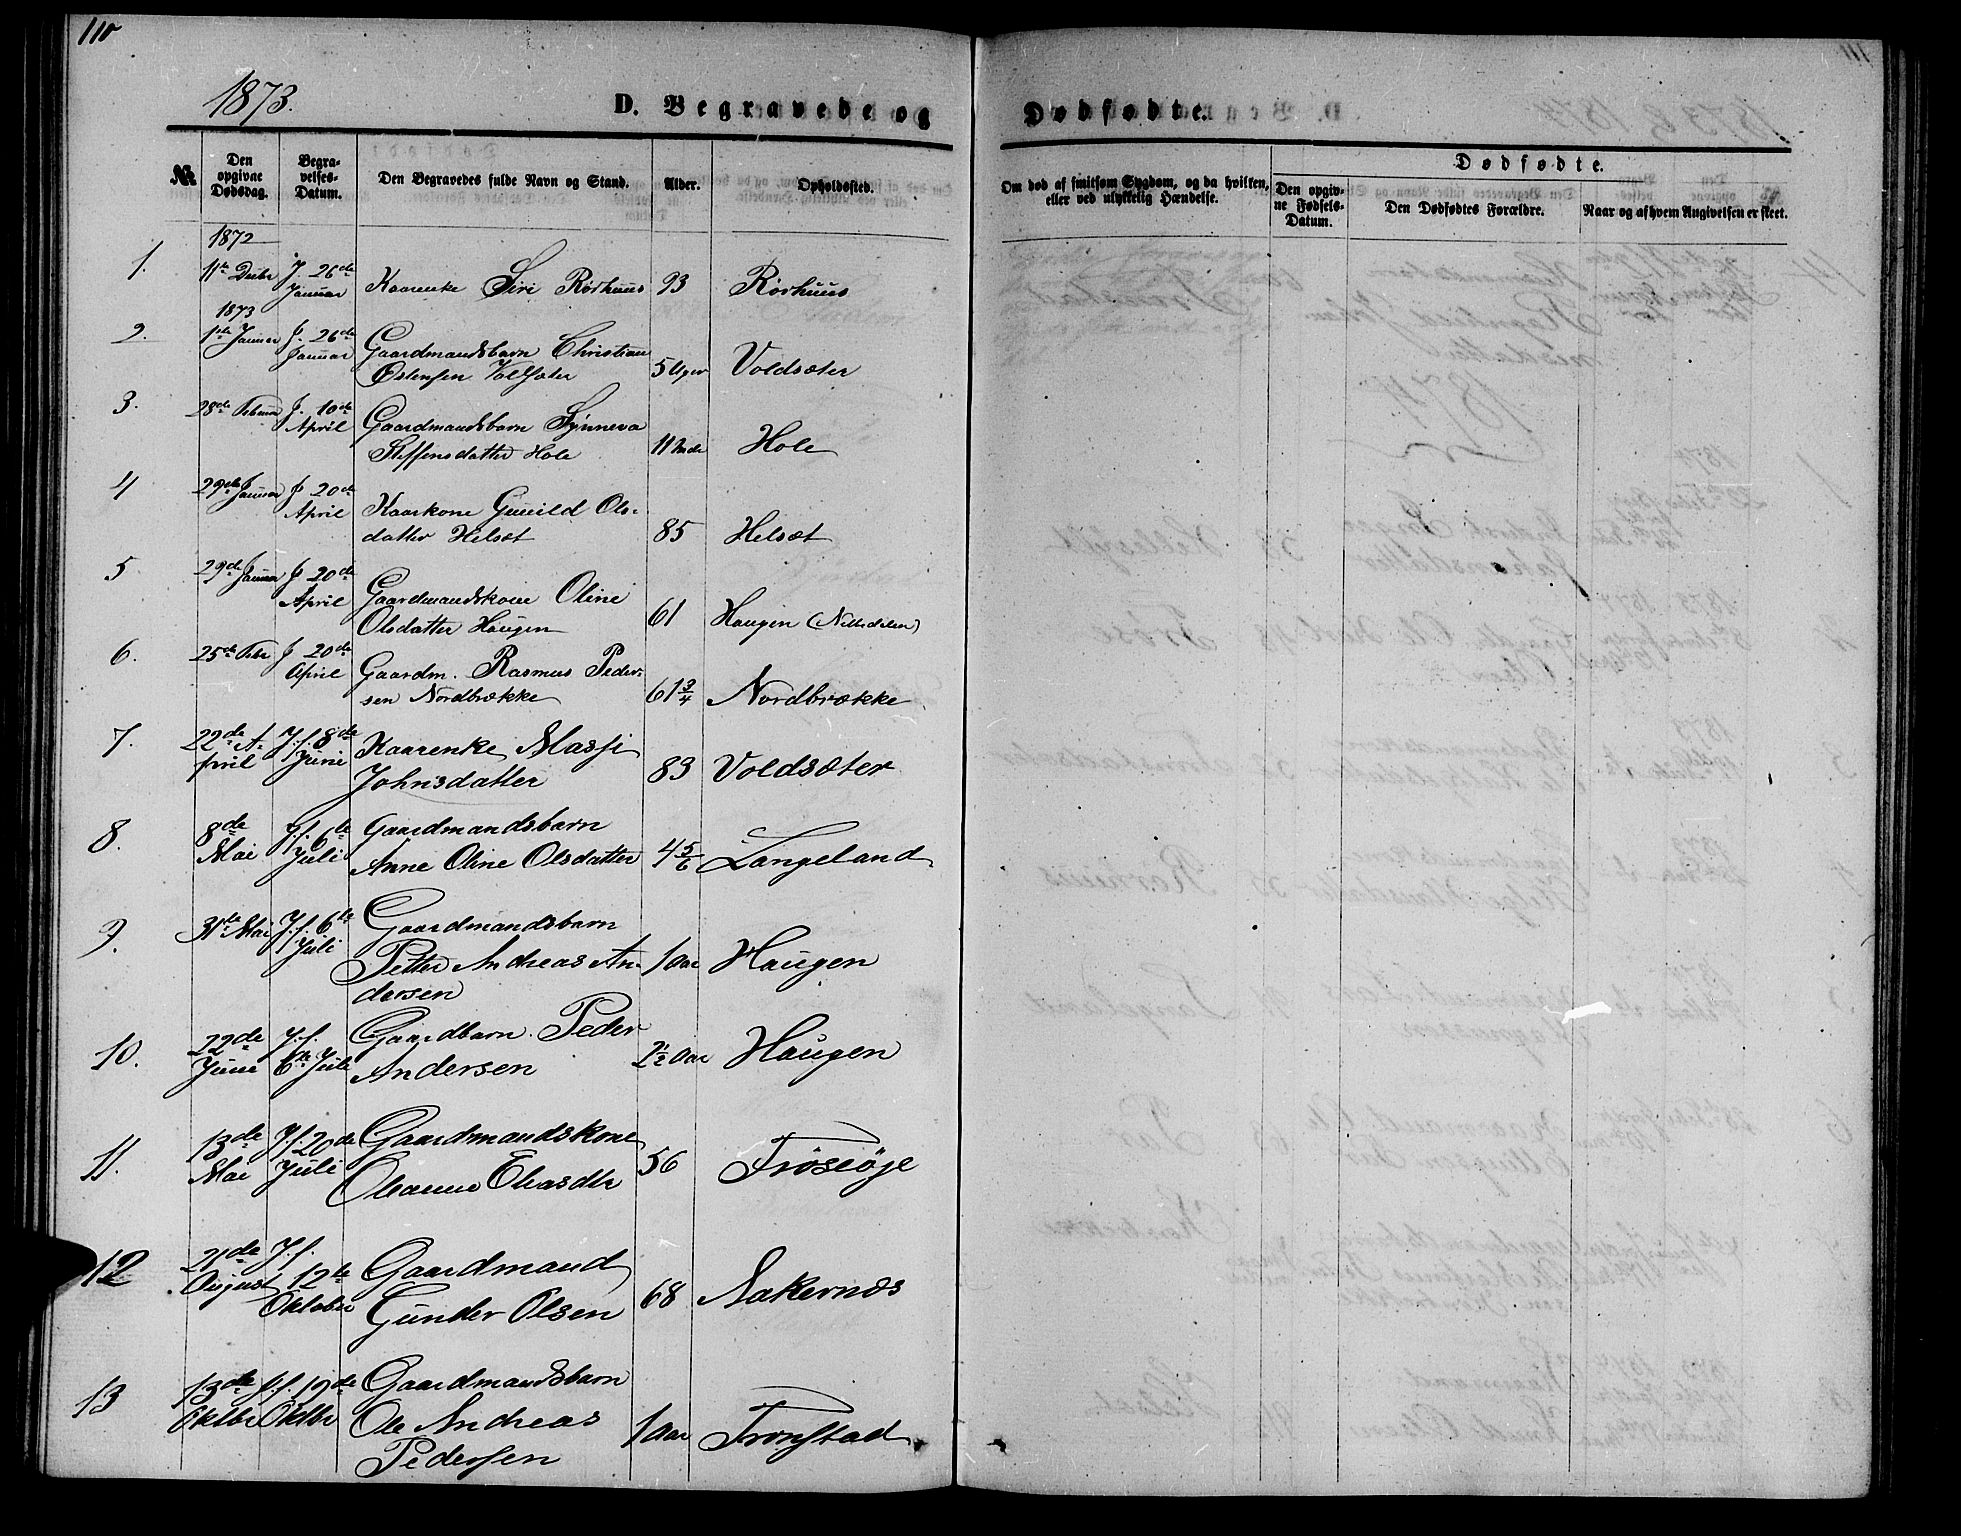 110
1873.
D. Begravede og Dødfødte.
№
Den opgivne Dødsdag.
Begravelses-Datum.
Den Begravedes fulde Navn og Stand.
Alder.
Opholdssted.
Om død af smitsom Sygdom, og da hvilken, eller ved ulykkelig Hændelse.
Dødfødte.
Den opgivne Fødsels-Datum.
Den Dødfødtes Forældre.
Naar og af hvem Angivelsen er skeet.
1872
1. 11te Decbr J. 26de Januar Kaarenke Siri Rørhuus 93 Rørhuus
1873
2. 1ste Januar J. 26de Januar Gaardmandsbarn Christian
Østensen Volsæter 5 Uger Voldsæter
3. 28de Februar J. 10de April Gaardmandsbarn Synneva
Steffensdatter Hole 11 Mdr Hole
4 29de Januar J 20de April Kaarkone Gunild Ols-
datter Helsæt 85 Helsæt
5 29de Januar J 20de April Gaardmandskone Oline
Olsdatter Haugen 61 Haugen (Nebbedalen)
6. 25de Febr J 20de April Gaardm. Rasmus Peder-
sen Nordbrække 61 3/4 Nordbrække
7. 22de A-
pril J.f. 8de Juni Kaarenke Massi
Johnsdatter 83 Voldsæter
8. 8de Mai J.f. 6te Juli Gaardmandsbarn
Anne Oline Olsdatter 4 5/6 Langeland
9. 31te Mai J.f. 6te Juli Gaardmandsbarn
Petter Andreas An-
dersen 1 Aar Haugen
10. 22de Juni J.f. 6te Juli Gaardbarn Peder
Andersen 2 1/2 Aar Haugen
11. 13de Mai J.f. 20de Juli Gaardmandskone
Oleanne Eliasdtr 56 Frøseøje
12 21de August J.f. 12te Oktober Gaardmand
Gunder Olsen 68 Aakernæs
13 13de Oktbr J.f. 19de Oktbr Gaardmandsbarn
Ole Andreas
Pedersen 1 Aar Tronstad